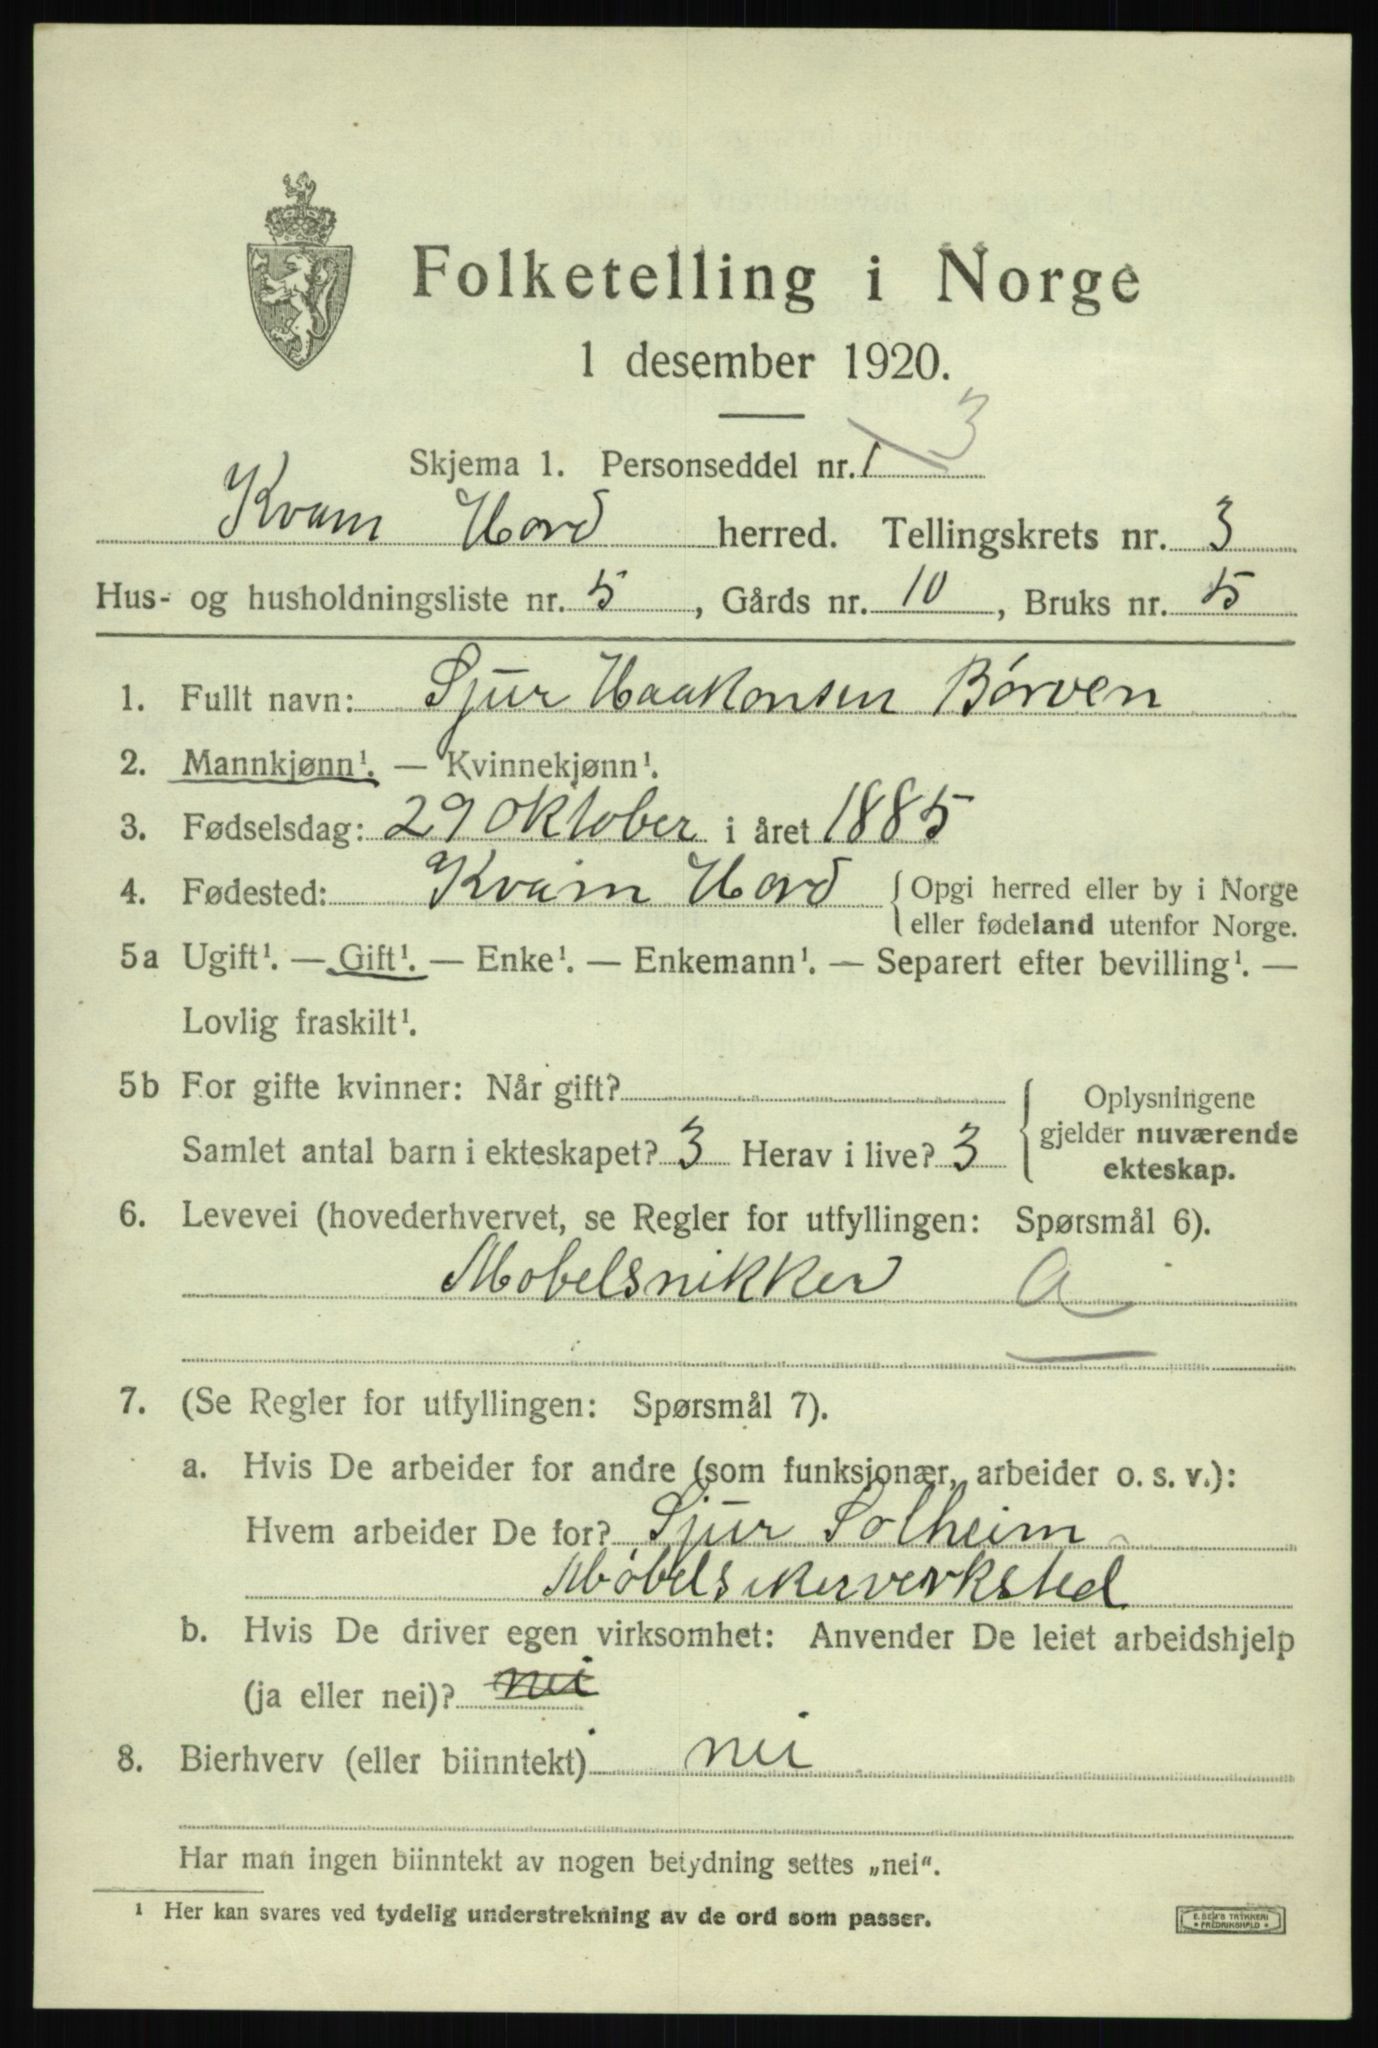 Folketelling i Norge
1 desember 1920.
Skjema 1. Personseddel nr. 1 3
Kvam Hord herred. Tellingskrets nr. 3
Hus- og husholdningsliste nr. 5, Gårds nr. 10, Bruks nr. 5
1. Fullt navn: Sjur Haakonsen Børven
2. Mannkjønn¹. — Kvinnekjønn¹.
3. Fødselsdag: 29 Oktober i året 1885
4. Fødested: Kvam Hord { Opgi herred eller by i Norge
eller fødeland utenfor Norge.
5a Ugift¹. — Gift¹. — Enke¹. — Enkemann¹. — Separert efter bevilling¹. —
Lovlig fraskilt¹.
5b For gifte kvinner: Når gift? { Oplysningene
gjelder nuværende
Samlet antal barn i ekteskapet? 3 Herav i live? 3
ekteskap.
6. Levevei (hovederhvervet, se Regler for utfyllingen: Spørsmål 6).
Mobelsnikker a
7. (Se Regler for utfyllingen: Spørsmål 7).
a. Hvis De arbeider for andre (som funksjonær, arbeider o. s. v.):
Hvem arbeider De for? Sjur Solheim
Møbelsikerverksted
b. Hvis De driver egen virksomhet: Anvender De leiet arbeidshjelp
(ja eller nei)? nei
8. Bierhverv (eller biinntekt) nei
Har man ingen biinntekt av nogen betydning settes „nei“.
¹ Her kan svares ved tydelig understrekning av de ord som passer.
E. SEM'S TRYKKERI
* FREDRIKSHALD *